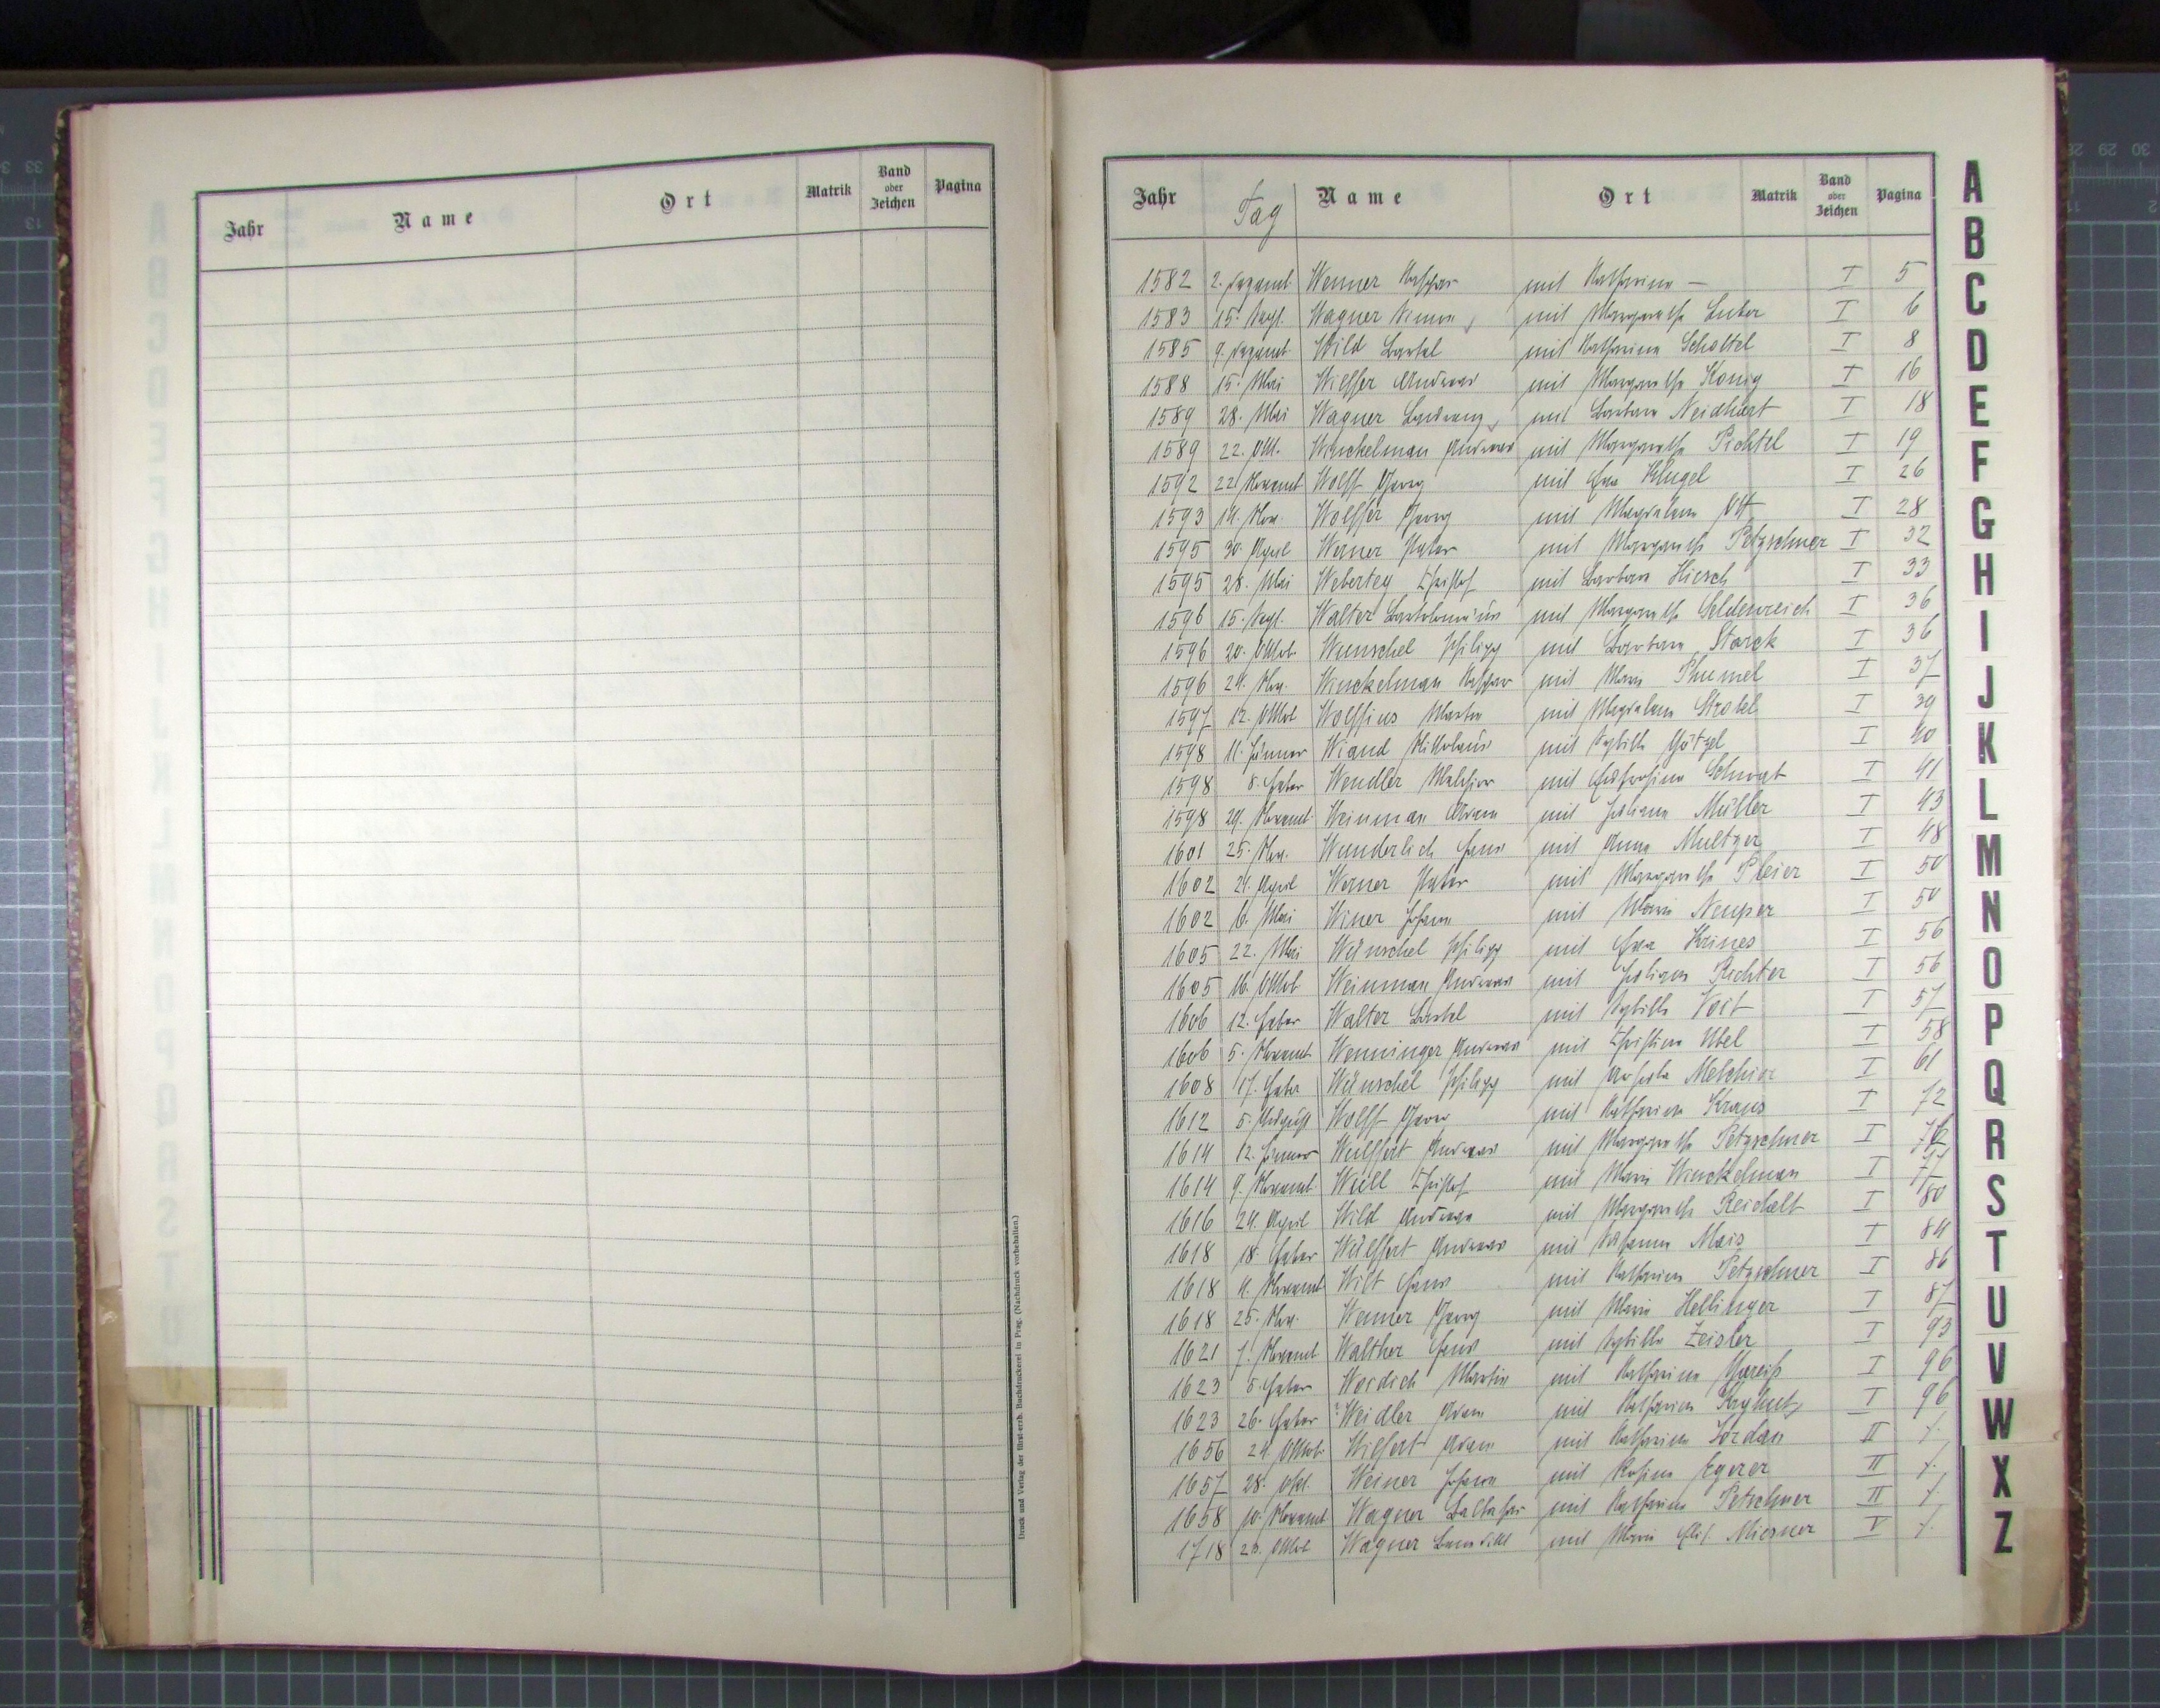 Jahr Name Ort Matrik Band oder Zeichen Pagina
Druck und Verlag der fürst-erzb. Buchdruckerei in Prag. (Nachdruck vorbehalten.)
Jahr Tag Name Ort Matrik Band oder Zeichen Pagina
1582 2. Werner Kaspar mit Katharina — I 5
1583 15. Sept. Wagner Simon mit Margareth I 6
1585 9. Wild Bartel mit Katharina Schottel I 8
1588 15. Mai Wilffer Andreas mit Margareth König I 16
1589 28. Mai Wagner mit Barbara Neidhart I 18
1589 22. Okt. Winckelman Andreas mit Margareth Pichtel I 19
1592 22. Novemb. Wolff Georg mit Eva Klugel I 26
1593 14. Nov. Wolffer Georg mit Magdalena Ott I 28
1595 30. April Werner Peter mit Margareth Petzschner I 32
1595 28. Mai Webertey Christof mit Barbara Hirsch I 33
1596 15. Sept. Walter Bartolomäus mit Margareth I 36
1596 20. Oktob. Wunschel Philipp mit Barbara Starck I 36
1596 24. Nov. Winckelman Kaspar mit Maria I 37
1597 12. Oktob Wolffius Martin mit Magdalena Strobl I 39
1598 11. Jänner Wiand Nikolaus mit Sybilla Götzel I 40
1598 8. Feber Wendler Melchior mit Eufrosina I 41
1598 29. Novemb. Weinman Adam mit Juliana Müller I 43
1601 25. Nov. Wunderlich Hans mit Anna Multzer I 48
1602 24. April Werner Peter mit Margareth Pleier I 50
1602 6. Mai Winer Johann mit Maria Neuper I 50
1605 22. Mai Wünschel Philipp mit Eva Krines I 56
1605 16. Oktob Weinman Andreas mit Juliana Richter I 56
1606 12. Feber Walter Bartel mit Sybilla Voit I 57
1606 5. Novemb. Wenninger Andreas mit Christina Ubel I 58
1608 17. Feber Wünschel Philipp mit Ursula Melchior I 61
1612 5. August Wolff Georg mit Katharina Kraus I 72
1614 12. Jänner Wülffert Andreas mit Margareth Petzschner I 76
1614 9. Novemb Christof mit Maria Winckelman I 77
1616 24. April Wild Andreas mit Margareth Reichelt I 80
1618 18. Feber Wülffert Andreas mit Susanna Mais I 84
1618 11. Novemb Wilt Hans mit Katharina Petzschner I 86
1618 25. Nov. Werner Georg mit Maria Hellinger I 87
1621 7. Novemb. Walther Hans mit Sybilla Zeisler I 93
1623 5. Feber Martin mit Katharina Gareiß I 96
1623 26. Feber ? Weidler Adam mit Katharina I 96
1656 24. Oktob. Wilfert Adam mit Katharina Jordan II /.
1657 28. Okt. Weiner Johann mit Rosina Egerer II /.
1658 10. Novemb Wagner Baltasar mit Katharina Petschner II /.
1718 26. Oktob Wagner Benedikt mit Maria Elis. Miesner V /.
A
B
C
D
E
F
G
H
I
J
K
L
M
N
O
P
Q
R
S
T
U
V
W
X
Z